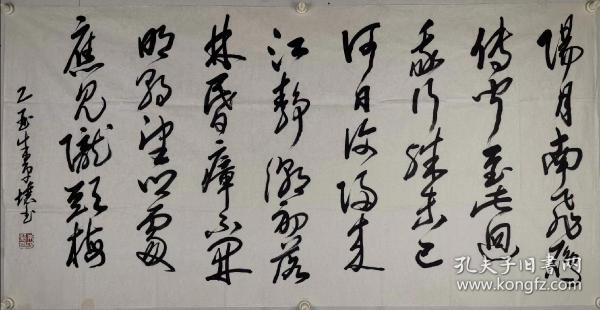 陽月南飛雁
傳聞至此迴
我行殊未已
何日復歸來
江靜潮初落
林昏瘴不開
明朝望鄉處
應見隴頭梅
乙亥
書
孔夫子旧书网
www.kongfz.com